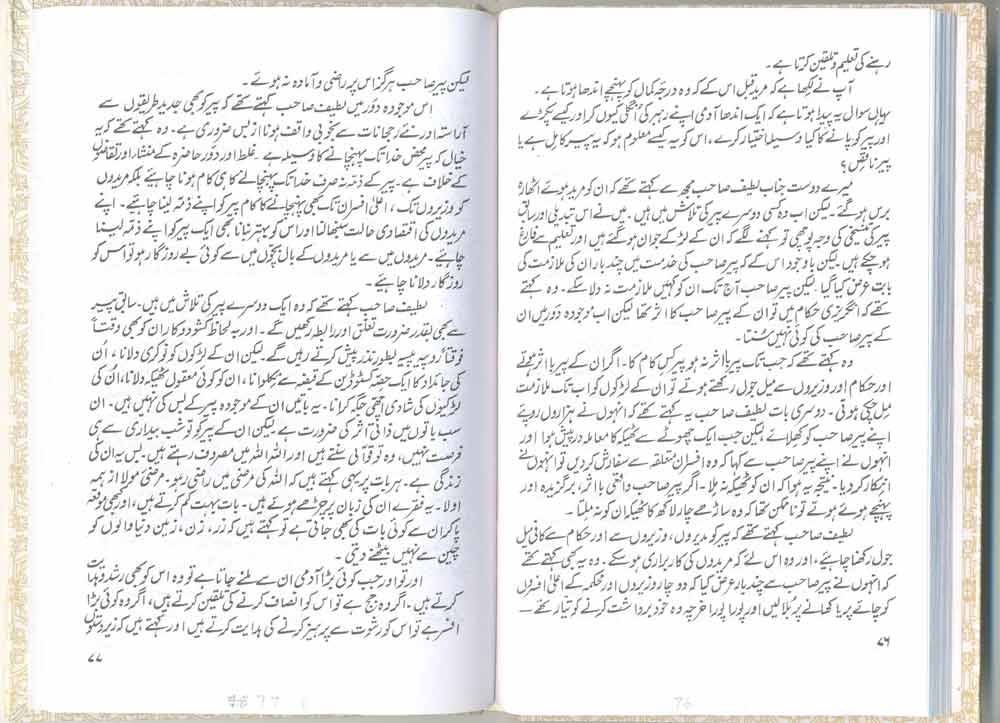 رہنے کی تعلیم و تلقین کرتا ہے۔
آپ نے لکھا ہے کہ مرید قبل اس کے کہ وہ درجۂ کمال کو پہنچے اندھا ہوتا ہے۔
یہاں سوال یہ پیدا ہوتا ہے کہ ایک اندھا آدمی اپنے رہبر کی انگلی کیوں کر اور کیسے پکڑے
اور پیر کو پانے کا کیا وسیلہ اختیار کرے، اس کو یہ کیسے معلوم ہو کہ یہ پیر کامل ہے یا
پیر ناقص؟
میرے دوست جناب لطیف صاحب مجھ سے کہتے تھے کہ ان کو مرید ہوئے اٹھارہ
برس ہو گئے۔ لیکن اب وہ کسی دوسرے پیر کی تلاش میں ہیں۔ میں نے اس تبدیلی اور سابق
پیر کی کی وجہ پوچھی تو کہنے لگے کہ ان کے لڑکے جوان ہو گئے ہیں اور تعلیم سے فارغ
ہو چکے ہیں۔ لیکن باوجود اس کے کہ پیر صاحب کی خدمت میں چند بار ان کی ملازمت کی
بابت عرض کیا گیا۔ لیکن پیر صاحب آج تک ان کو کہیں ملازمت نہ دلا سکے۔ وہ کہتے
تھے کہ انگریزی حکام میں تو ان کے پیر صاحب کا اثر تھا لیکن اب موجودہ دَور میں ان
کے پیر صاحب کی کوئی نہیں سُنتا۔
وہ کہتے تھے کہ جب تک پیر بااثر نہ ہو پیر کس کام کا۔ اگر ان کے پیر بااثر ہوتے
اور حکام اور وزیروں سے میل جول رکھتے ہوتے تو ان کے لڑکوں کو اب تک ملازمت
مِل چکی ہوتی۔ دوسری بات لطیف صاحب یہ کہتے تھے کہ انہوں نے ہزاروں روپے
اپنے پیر صاحب کو کھلائے لیکن جب ایک چھوٹے سے ٹھیکہ کا معاملہ درپیش ہوا اور
انہوں نے اپنے پیر صاحب سے کہا کہ وہ افسران متعلقہ سے سفارش کر دیں تو انہوں نے
انکار کر دیا۔ نتیجہ یہ ہوا کہ ان کو ٹھیکہ نہ مِلا۔ اگر پیر صاحب واقعی بااثر، برگزیدہ اور
پہنچے ہوئے ہوتے تو ناممکن تھا کہ وہ ساڑھے چار لاکھ کا ٹھیکہ ان کو نہ مِلتا۔
لطیف صاحب کہتے تھے کہ پیر کو مدیروں، وزیروں سے اور حکام سے کافی میل
جول رکھنا چاہئے، اور وہ اس لئے کہ مریدوں کی کاربراری ہو سکے۔ وہ یہ بھی کہتے تھے
کہ انہوں نے پیر صاحب سے چند بار عرض کیا کہ دو چار وزیروں اور محکمہ کے اعلیٰ افسروں
کو چائے پر یا کھانے پر بُلا لیں اور پورا پورا خرچہ وہ خود برداشت کرنے کو تیار تھے۔
۷۶
76
لیکن پیر صاحب ہرگز اس پر راضی و آمادہ نہ ہوئے۔
اس موجودہ دَور میں لطیف صاحب کہتے تھے کہ پیر کو بھی جدید طریقوں سے
آراستہ اور نئے رجحانات سے بخوبی واقف ہونا از بس ضروری ہے۔ وہ کہتے تھے کہ یہ
خیال کہ پیر محض خدا تک پہنچانے کا وسیلہ ہے۔ غلط اور دَورِ حاضرہ کے منشار اور تقاضوں
کے خلاف ہے۔ پیر کے ذمّہ نہ صرف خدا تک پہنچانے کا ہی کام ہونا چاہئیے بلکہ مریدوں
کو وزیروں تک، اعلیٰ افسران تک بھی پہنچانے کا کام پیر کو اپنے ذمّہ لینا چاہئیے۔ اپنے
مریدوں کی اقتصادی حالت سنبھالنا اور اس کو بہتر بنانا بھی ایک پیر کو اپنے ذمّہ لینا
چاہئیے۔ مریدوں میں سے یا مریدوں کے بال بچّوں میں سے کوئی بے روزگار ہو تو اس کو
روزگار دلانا چاہئیے۔
لطیف صاحب کہتے تھے کہ وہ ایک دوسرے پیر کی تلاش میں ہیں۔ سابق پیر
سے بھی بقدرِ ضرورت تعلّق اور رابطہ رکھیں گے۔ اور بہ لحاظ کشود و کار ان کو بھی وقتاً
فوقتاً روپیہ پیسہ بطورِ نذر پیش کرتے رہیں گے۔ لیکن ان کے لڑکوں کو نوکری دلانا، اُن
کی جائداد کا ایک حصّہ کسٹوڈین کے قبضہ سے نکلوانا، ان کو کوئی معقول ٹھیکہ دلانا، اُن کی
لڑکیوں کی شادی اچھی جگہ کرانا۔ یہ باتیں ان کے موجودہ پیر کے بس کی نہیں ہیں۔ ان
سب باتوں میں ذاتی اثر کی ضرورت ہے۔ لیکن ان کے پیر کو تو شب بیداری سے ہی
فرصت نہیں، وہ تو قوالی سنتے ہیں اور اللہ اللہ میں مصروف رہتے ہیں۔ بس یہ ان کی
زندگی ہے۔ ہر بات پر یہی کہتے ہیں کہ اللہ کی مرضی میں راضی رہو۔ مرضیٔ مولا از ہمہ
اولا۔ یہ فقرے ان کی زبان پر چڑھے ہوئے ہیں۔ بات بہت کم کرتے ہیں، اور کبھی موقعہ
پا کر ان سے کوئی بات کی بھی جاتی ہے تو کہتے ہیں کہ زر، زن، زمین دنیا والوں کو
چین سے نہیں بیٹھنے دیتی۔
اور تو اور جب کوئی بڑا آدمی ان سے ملنے جاتا ہے تو وہ اس کو بھی رشد و ہدایت
کرتے ہیں۔ اگر وہ جج ہے تو اس کو انصاف کرنے کی تلقین کرتے ہیں، اگر وہ کوئی بڑا
افسر ہے تو اس کو رشوت سے پرہیز کرنے کی ہدایت کرتے ہیں اور کہتے ہیں کہ زیردستوں
۷۷
77